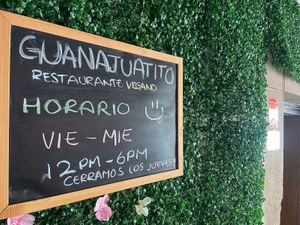 GUANAJUATITO
RESTAURANTE VEGANO
HORARIO
VIE - MIE
12PM - 6PM
CERRAMOS LOS JUEVES